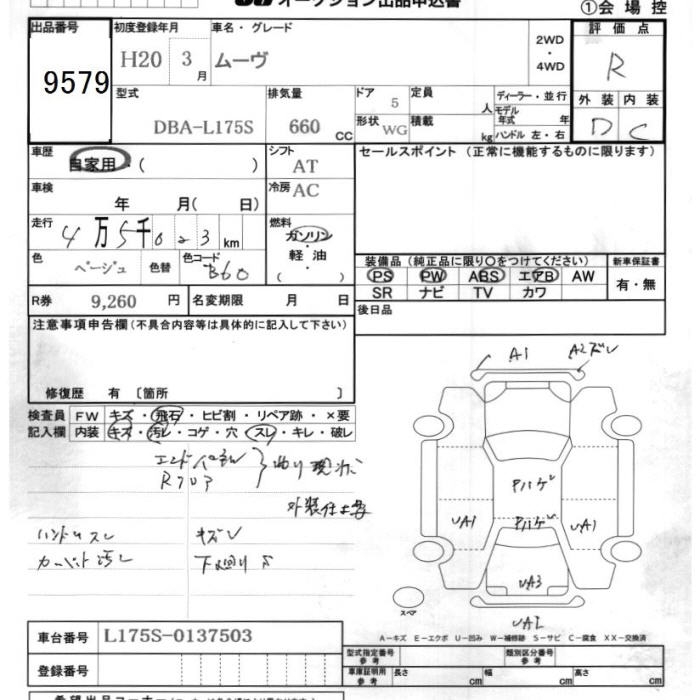 オークション出品申込書
①会場控
出品番号 初度登録年月 車名・グレード 2WD・4WD 評価点
9579 H20 3月 ムーヴ R
型式 排気量 ドア 5 定員 人 ディーラー・並行 外装 内装
DBA-L175S 660 CC 形状 WG 積載 kg モデル年式 年 ハンドル 左・右 D C
車歴 自家用・( ) シフト AT セールスポイント (正常に機能するものに限ります)
車検 年 月( 日) 冷房 AC
走行 4万5千023km 燃料 ガソリン・軽油 ( )
色 ベージュ 色替 色コード B60
装備品(純正品に限り〇をつけてください) 新車保証書
PS PW ABS エアB AW 有・無
SR ナビ TV カワ
R券 9,260 円 名変期限 月 日 後日品
注意事項申告欄(不具合内容等は具体的に記入して下さい)
修復歴 有 〔箇所 〕
検査員 FW キズ・飛石・ヒビ割・リペア跡・×要
記入欄 内装 キズ・汚レ・コゲ・穴・スレ・キレ・破レ
エンドパネル
Rフロア
外装仕上要
ハンドルスレ キズレ
カーペット汚レ 下廻りS
A1 A2ズレ
Pハゲ
UA1 Pハゲ UA1
UA3
スペア
A―キズ E―エクボ U―凹み W―補修跡 S―サビ C―腐食 XX―交換済
車台番号 L175S-0137503
登録番号
型式指定番号 参考 類別区分番号 参考
車庫証明用 参考 長さ cm 幅 cm 高さ cm